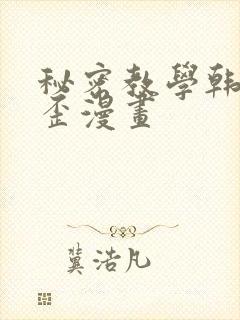 秘密教學韓
歪漫畫
冀浩凡